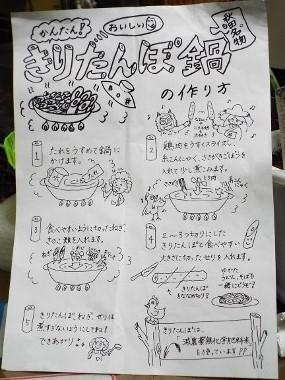 かんたん!
おいしい
秋田名物
きりたんぽ鍋
の作り方
1
たれをうすめて鍋に
かけます。
2
鶏肉をうすくスライスし、
糸こんにゃく、ささがきごぼうを
入れて少し煮こみます。
3
食べやすいように切ったねぎ、
きのこ類を入れます。
4
二〜三つぎりにした
きりたんぽと食べやすい
大きさに切ったせりを入れます。
きりたんぽ
をななめぎり!
5
きりたんぽ、ねぎ、せりは
煮すぎないようにしてね!
できあがり
きりたんぽは、
「減農薬無化学肥料米」
を使っています??